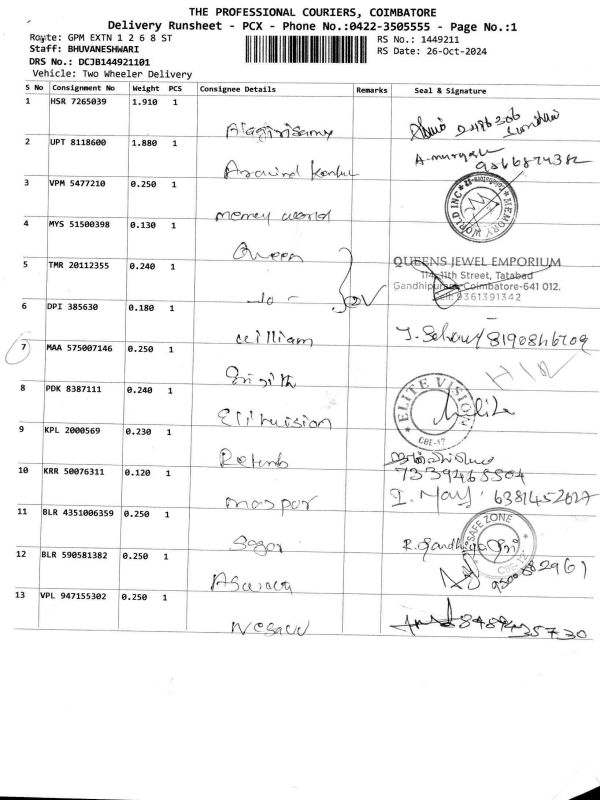 THE PROFESSIONAL COURIERS, COIMBATORE
Delivery Runsheet - PCX - Phone No.:0422-3505555 - Page No.:1
Route: GPM EXTN 1 2 6 8 ST
RS No.: 1449211
Staff: BHUVANESHWARI
RS Date: 26-Oct-2024
DRS No.: DCJB144921101
Vehicle: Two Wheeler Delivery
S No Consignment No Weight PCS Consignee Details Remarks Seal & Signature
1 HSR 7265039 1.910 1
Alagirisamy
2 UPT 8118600 1.880 1
Aravind
A. murugan
3 VPM 5477210 0.250 1
memory world
MEMORY WORLD INC
4 MYS 51500398 0.130 1
Queen
5 TMR 20112355 0.240 1
QUEENS JEWEL EMPORIUM
114, 11th Street, Tatabad
Gandhipuram, Coimbatore-641 012.
Cell: 9361391342
6 DPI 385630 0.180 1
William
7 MAA 575007146 0.250 1
8 PDK 8387111 0.240 1
Elitevision
ELITE VISION
CBE-12
9 KPL 2000569 0.230 1
10 KRR 50076311 0.120 1
11 BLR 4351006359 0.250 1
Sagar
SAFE ZONE
CBE-12
12 BLR 590581382 0.250 1
13 VPL 947155302 0.250 1